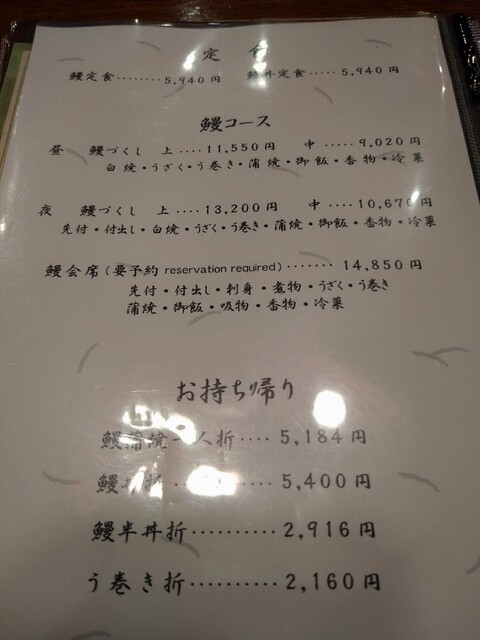 定食
鰻定食........5,940円 鰻丼定食.....5,940円
鰻コース
昼 鰻づくし 上....11,550円 中.....9,020円
白焼・うざく・う巻き・蒲焼・御飯・香物・冷菓
夜 鰻づくし 上....13,200円 中....10,670円
先付・付出し・白焼・うざく・う巻き・蒲焼・御飯・香物・冷菓
鰻会席(要予約 reservation required).......14,850円
先付・付出し・刺身・煮物・うざく・う巻き
蒲焼・御飯・吸物・香物・冷菓
お持ち帰り
鰻蒲焼一人折....5,184円
鰻丼折........5,400円
鰻半丼折..........2,916円
う巻き折..........2,160円